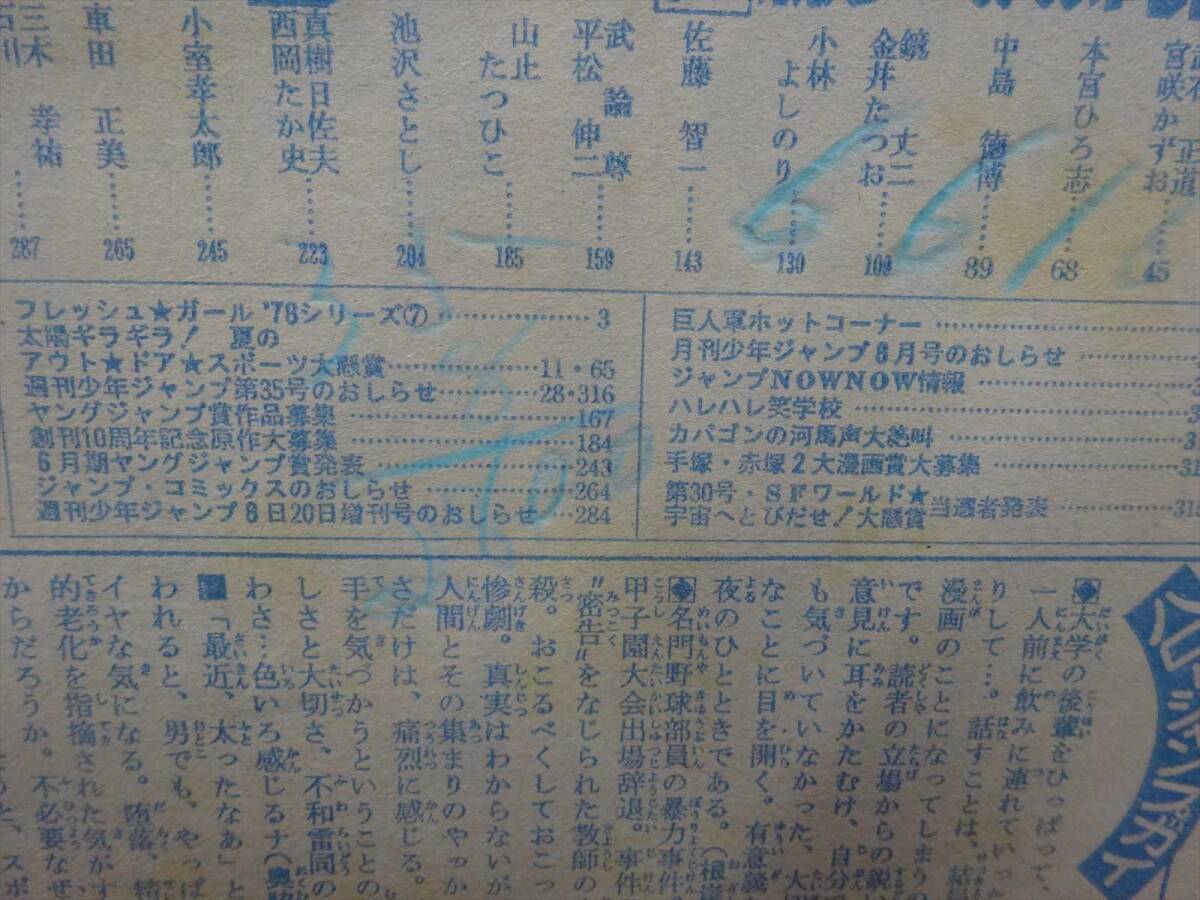 武論尊
宮咲かずお……45
本宮ひろ志……68
中島 徳博……89
鏡 丈二
金井たつお……109
小林 よしのり……130
佐藤 智一……143
武論尊
平松 伸二……159
山止 たつひこ……185
池沢さとし……204
真樹日佐夫
西岡たか史……223
小室孝太郎……245
車田 正美……265
三木 孝祐
287
フレッシュ★ガール'78シリーズ⑦……3
太陽ギラギラ! 夏の
アウト★ドア★スポーツ大懸賞……11・65
週刊少年ジャンプ第35号のおしらせ……28・316
ヤングジャンプ賞作品募集……167
創刊10周年記念原作大募集……184
6月期ヤングジャンプ賞発表……243
ジャンプ・コミックスのおしらせ……264
週刊少年ジャンプ8日20日増刊号のおしらせ……284
巨人軍ホットコーナー……
月刊少年ジャンプ8月号のおしらせ……
ジャンプNOWNOW情報……
ハレハレ笑学校……
カバゴンの河馬声大絶叫……
手塚・赤塚2大漫画賞大募集……
第30号・SFワールド★
宇宙へとびだせ!大懸賞 当選者発表……
大学の後輩をひっぱって、
一人前に飲みに連れていった
りして…。話すことは、結局
漫画のことになってしまうの
です。読者の立場からの鋭い
意見に耳をかたむけ、自分で
も気づいていなかった、大
なことに目を開く。有意義な
夜のひとときである。(根
名門野球部員の暴力事件
甲子園大会出場辞退。事件
"密告"をなじられた教師の
殺。おこるべくしておこっ
惨劇。真実はわからないが
人間とその集まりのやっか
さだけは、痛烈に感じる。
手を気づかうということの
しさと大切さ、不和雷同の
わさ…色いろ感じるナ(奥
「最近、太ったなあ」と
われると、男でも、やっぱ
イヤな気になる。堕落、精
的老化を指摘された気がす
からだろうか。不必要なぜ